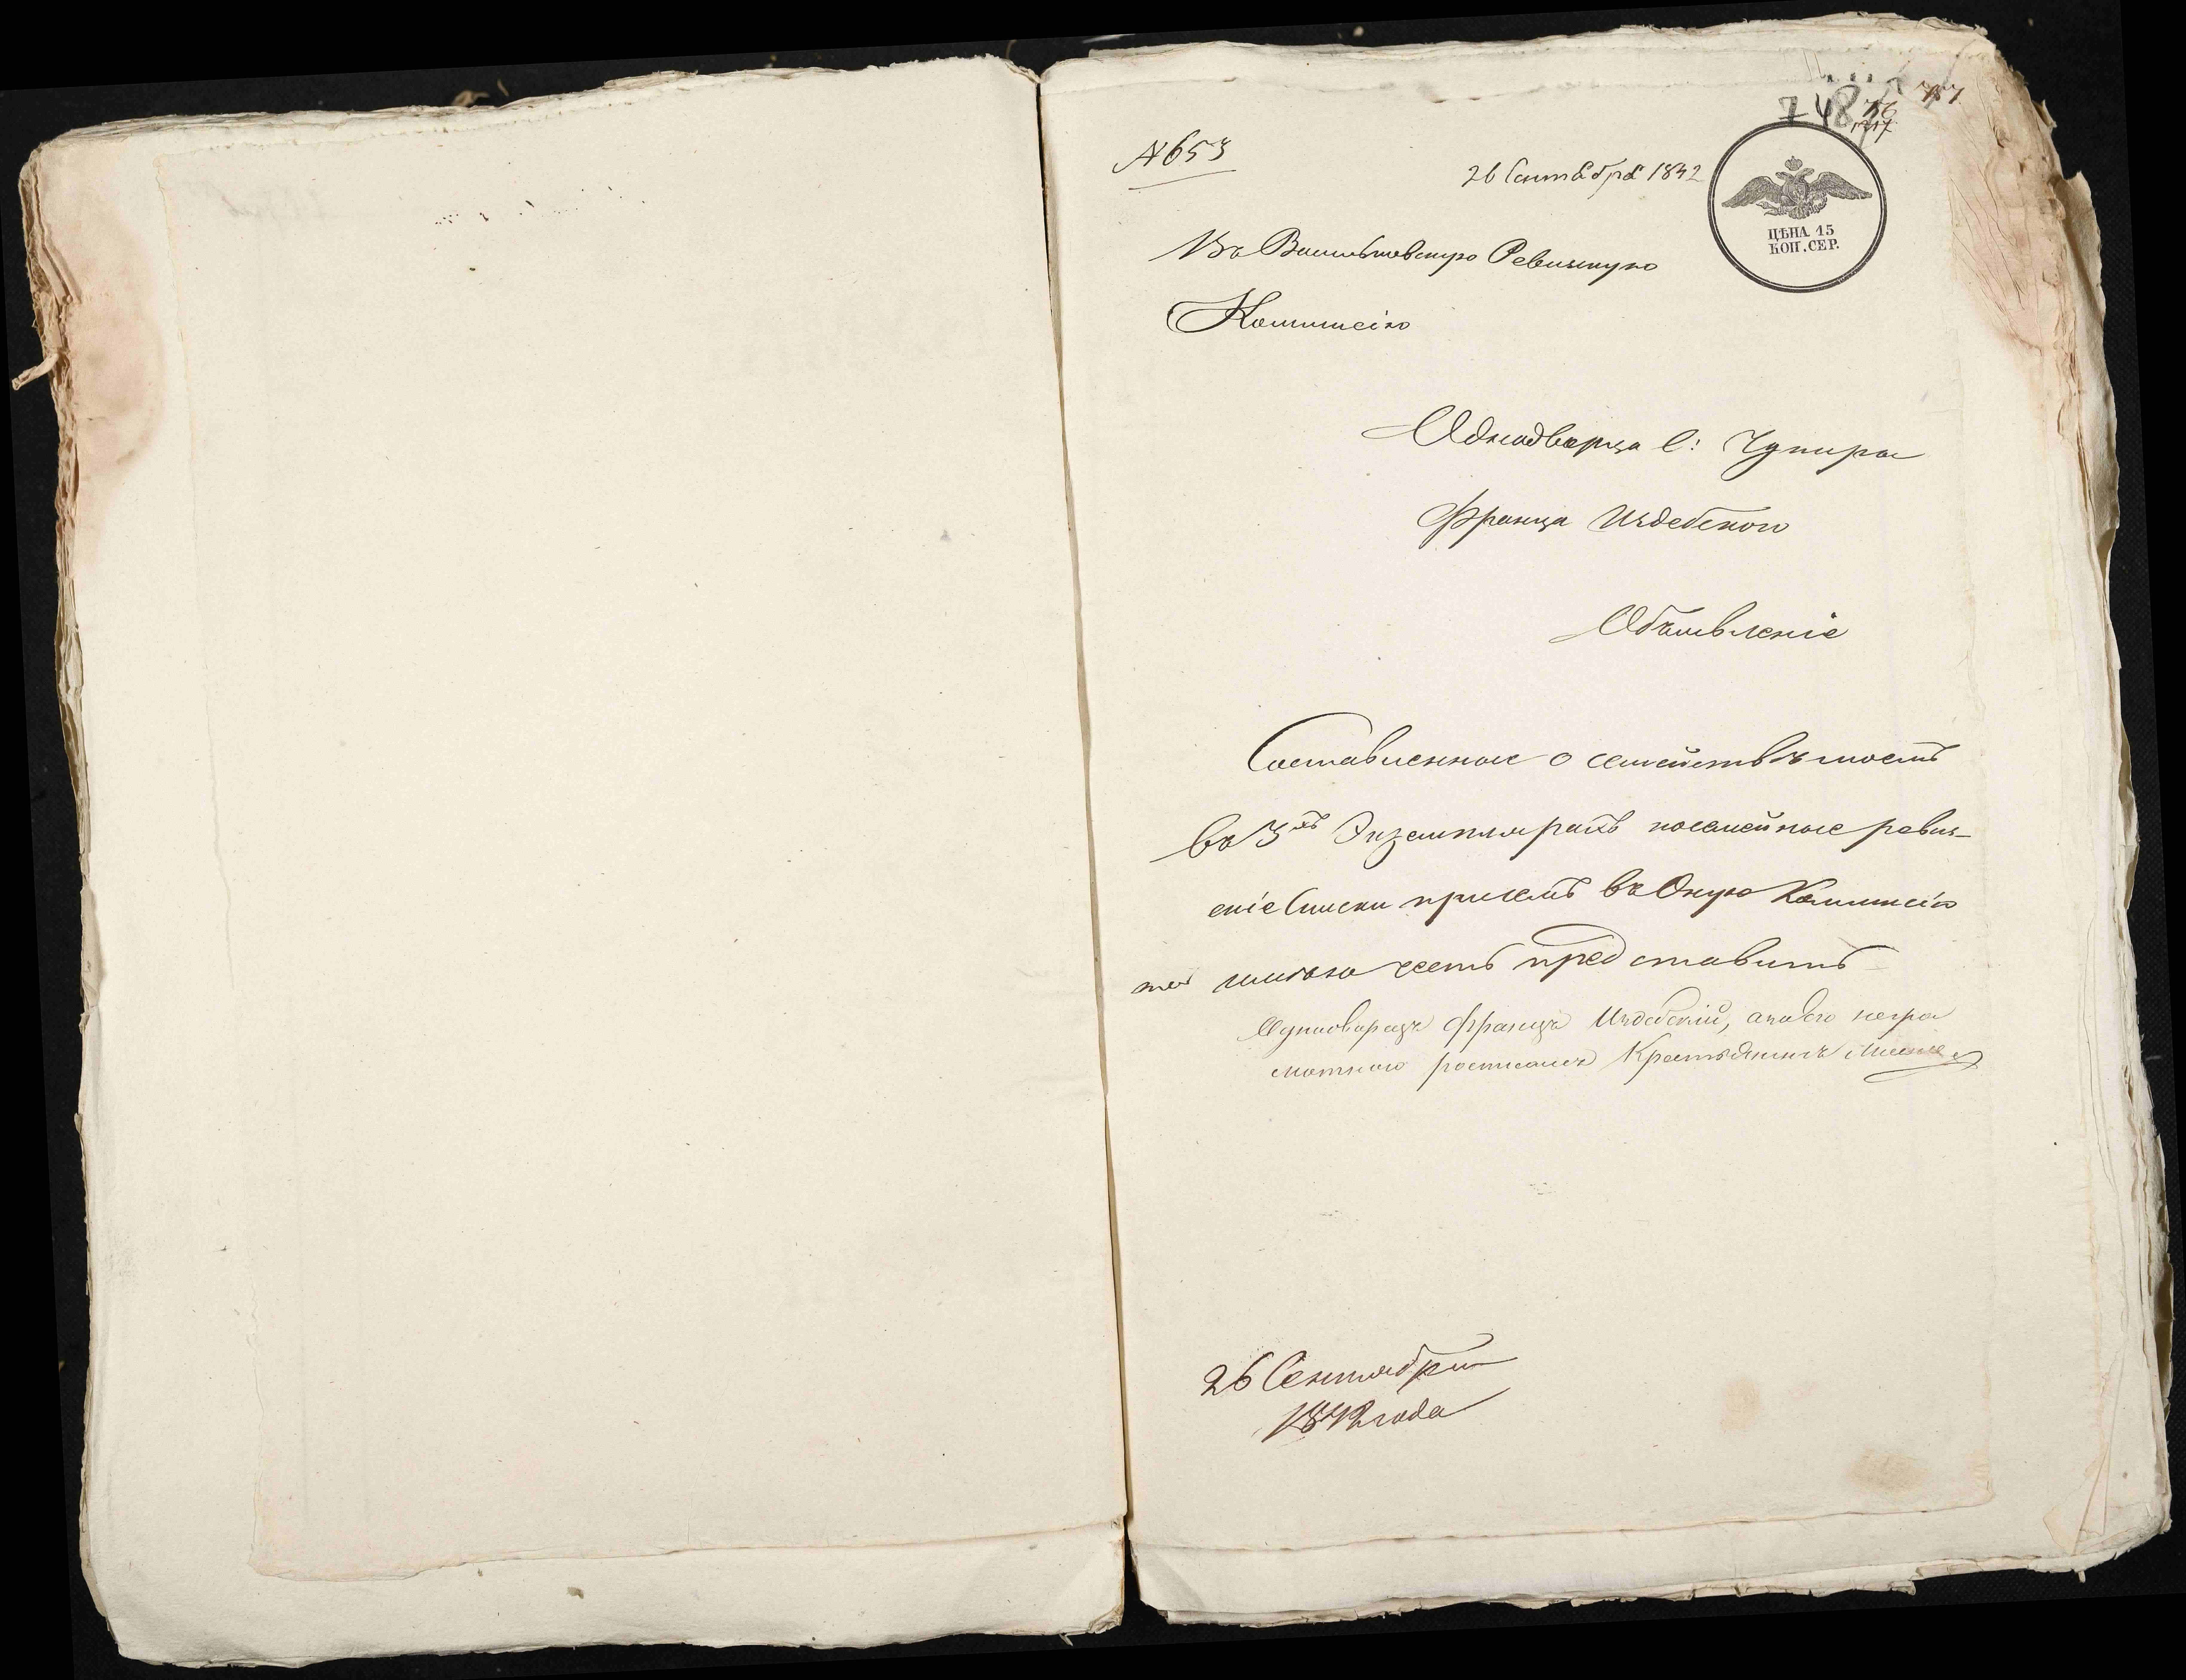 748
№ 653
26 Сентября 1842
ЦѢНА 15
КОП. СЕР.
Въ Васильковскую Ревизскую
Коммисію
Однодворца С: Чупира
Франца Издебского
Объявленіе
Составленные о семействѣ моемъ
въ 3хъ Экземплярахъ посемейные ревиз-
скіе Списки присемъ въ Оную Коммисію
имѣю честь представить
Однодворецъ Францъ Издебскій, а за его негра
мотного росписался Крестьянинъ
26 Сентября
1842 года